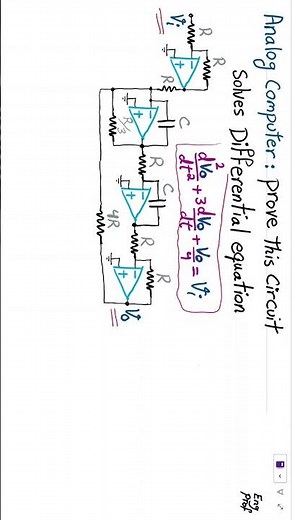 Analog Computer: prove this Circuit
Solves Differential equation
d²Vo/dt² + 3dVo/dt + Vo/4 = Vi
Vi
R
R
R
C
R/3
R
C
R
R
4R
Vo
Eng
Prof